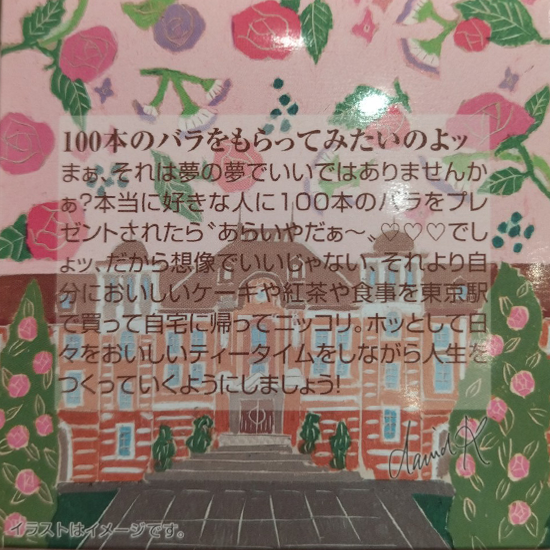 100本のバラをもらってみたいのよッ
まぁ、それは夢の夢でいいではありませんか
ぁ?本当に好きな人に100本のバラをプレ
ゼントされたら〝あらいやだぁ〜〟♡♡♡でし
ょッ、だから想像でいいじゃない、それより自
分においしいケーキや紅茶や食事を東京駅
で買って自宅に帰ってニッコリ。ホッとして日
々をおいしいティータイムをしながら人生を
つくっていくようにしましょう!
david K
イラストはイメージです。